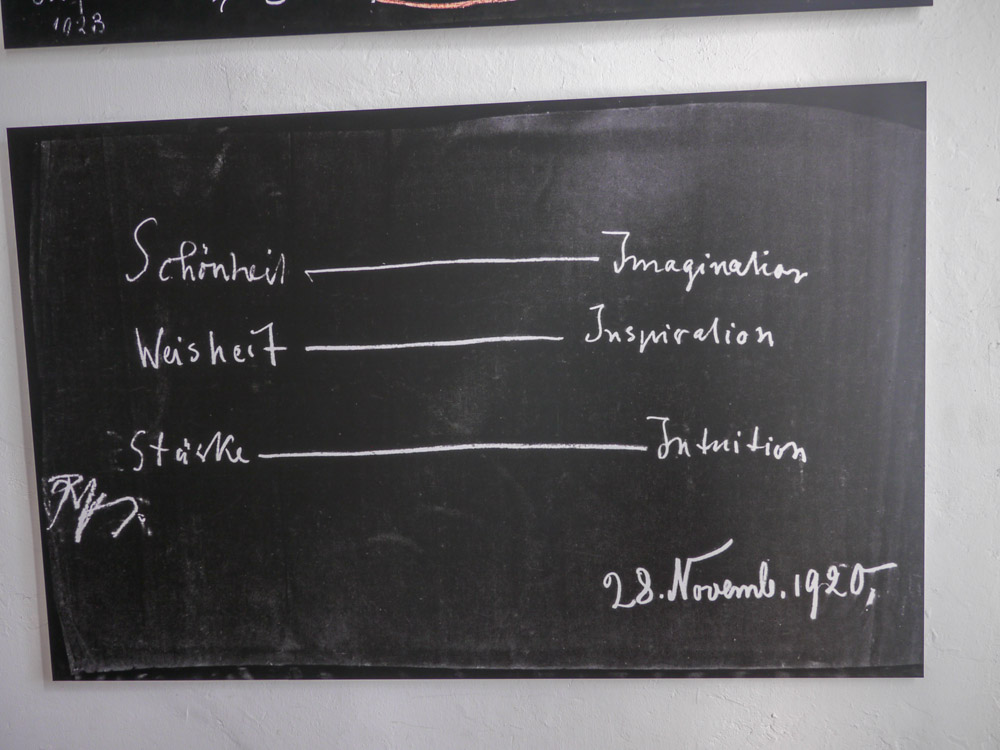 1923
Schönheit — Imagination
Weisheit — Inspiration
Stärke — Intuition
28. Novemb. 1920,